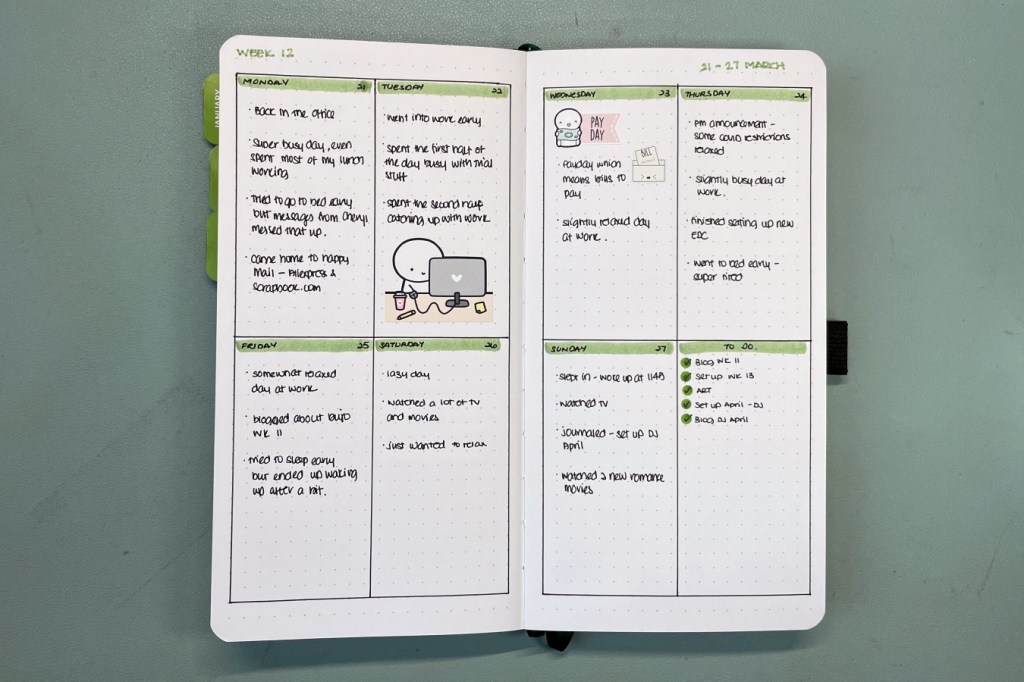 WEEK 12
MONDAY 21
· Back in the office
· Super busy day, even
spent most of my lunch
working
· Tried to go to bed early
but messages from Cheryl
messed that up.
· Came home to happy
mail - Aliexpress &
scrapbook.com
TUESDAY 22
· Went into work early
· spent the first half of
the day busy with trial
stuff
· spent the second half
catching up with work
FRIDAY 25
· somewhat relaxed
day at work
· blogged about bujo
WK 11
· tried to sleep early
but ended up waking
up after a bit.
SATURDAY 26
· lazy day
· watched a lot of TV
and movies
· just wanted to relax
21 - 27 MARCH
WEDNESDAY 23
PAY
DAY
BILL
· Payday which
means bills to
pay
· slightly relaxed day
at work.
THURSDAY 24
· PM announcement -
some covid restrictions
relaxed
· slightly busy day at
work.
· finished setting up new
EDC
· went to bed early -
super tired
SUNDAY 27
· slept in - woke up at 1145
· watched TV
· journaled - set up DJ
April
· watched 2 new romance
movies
TO DO.
Blog WK 11
Set up WK 13
ART
Set up April - DJ
Blog DJ April
JANUARY